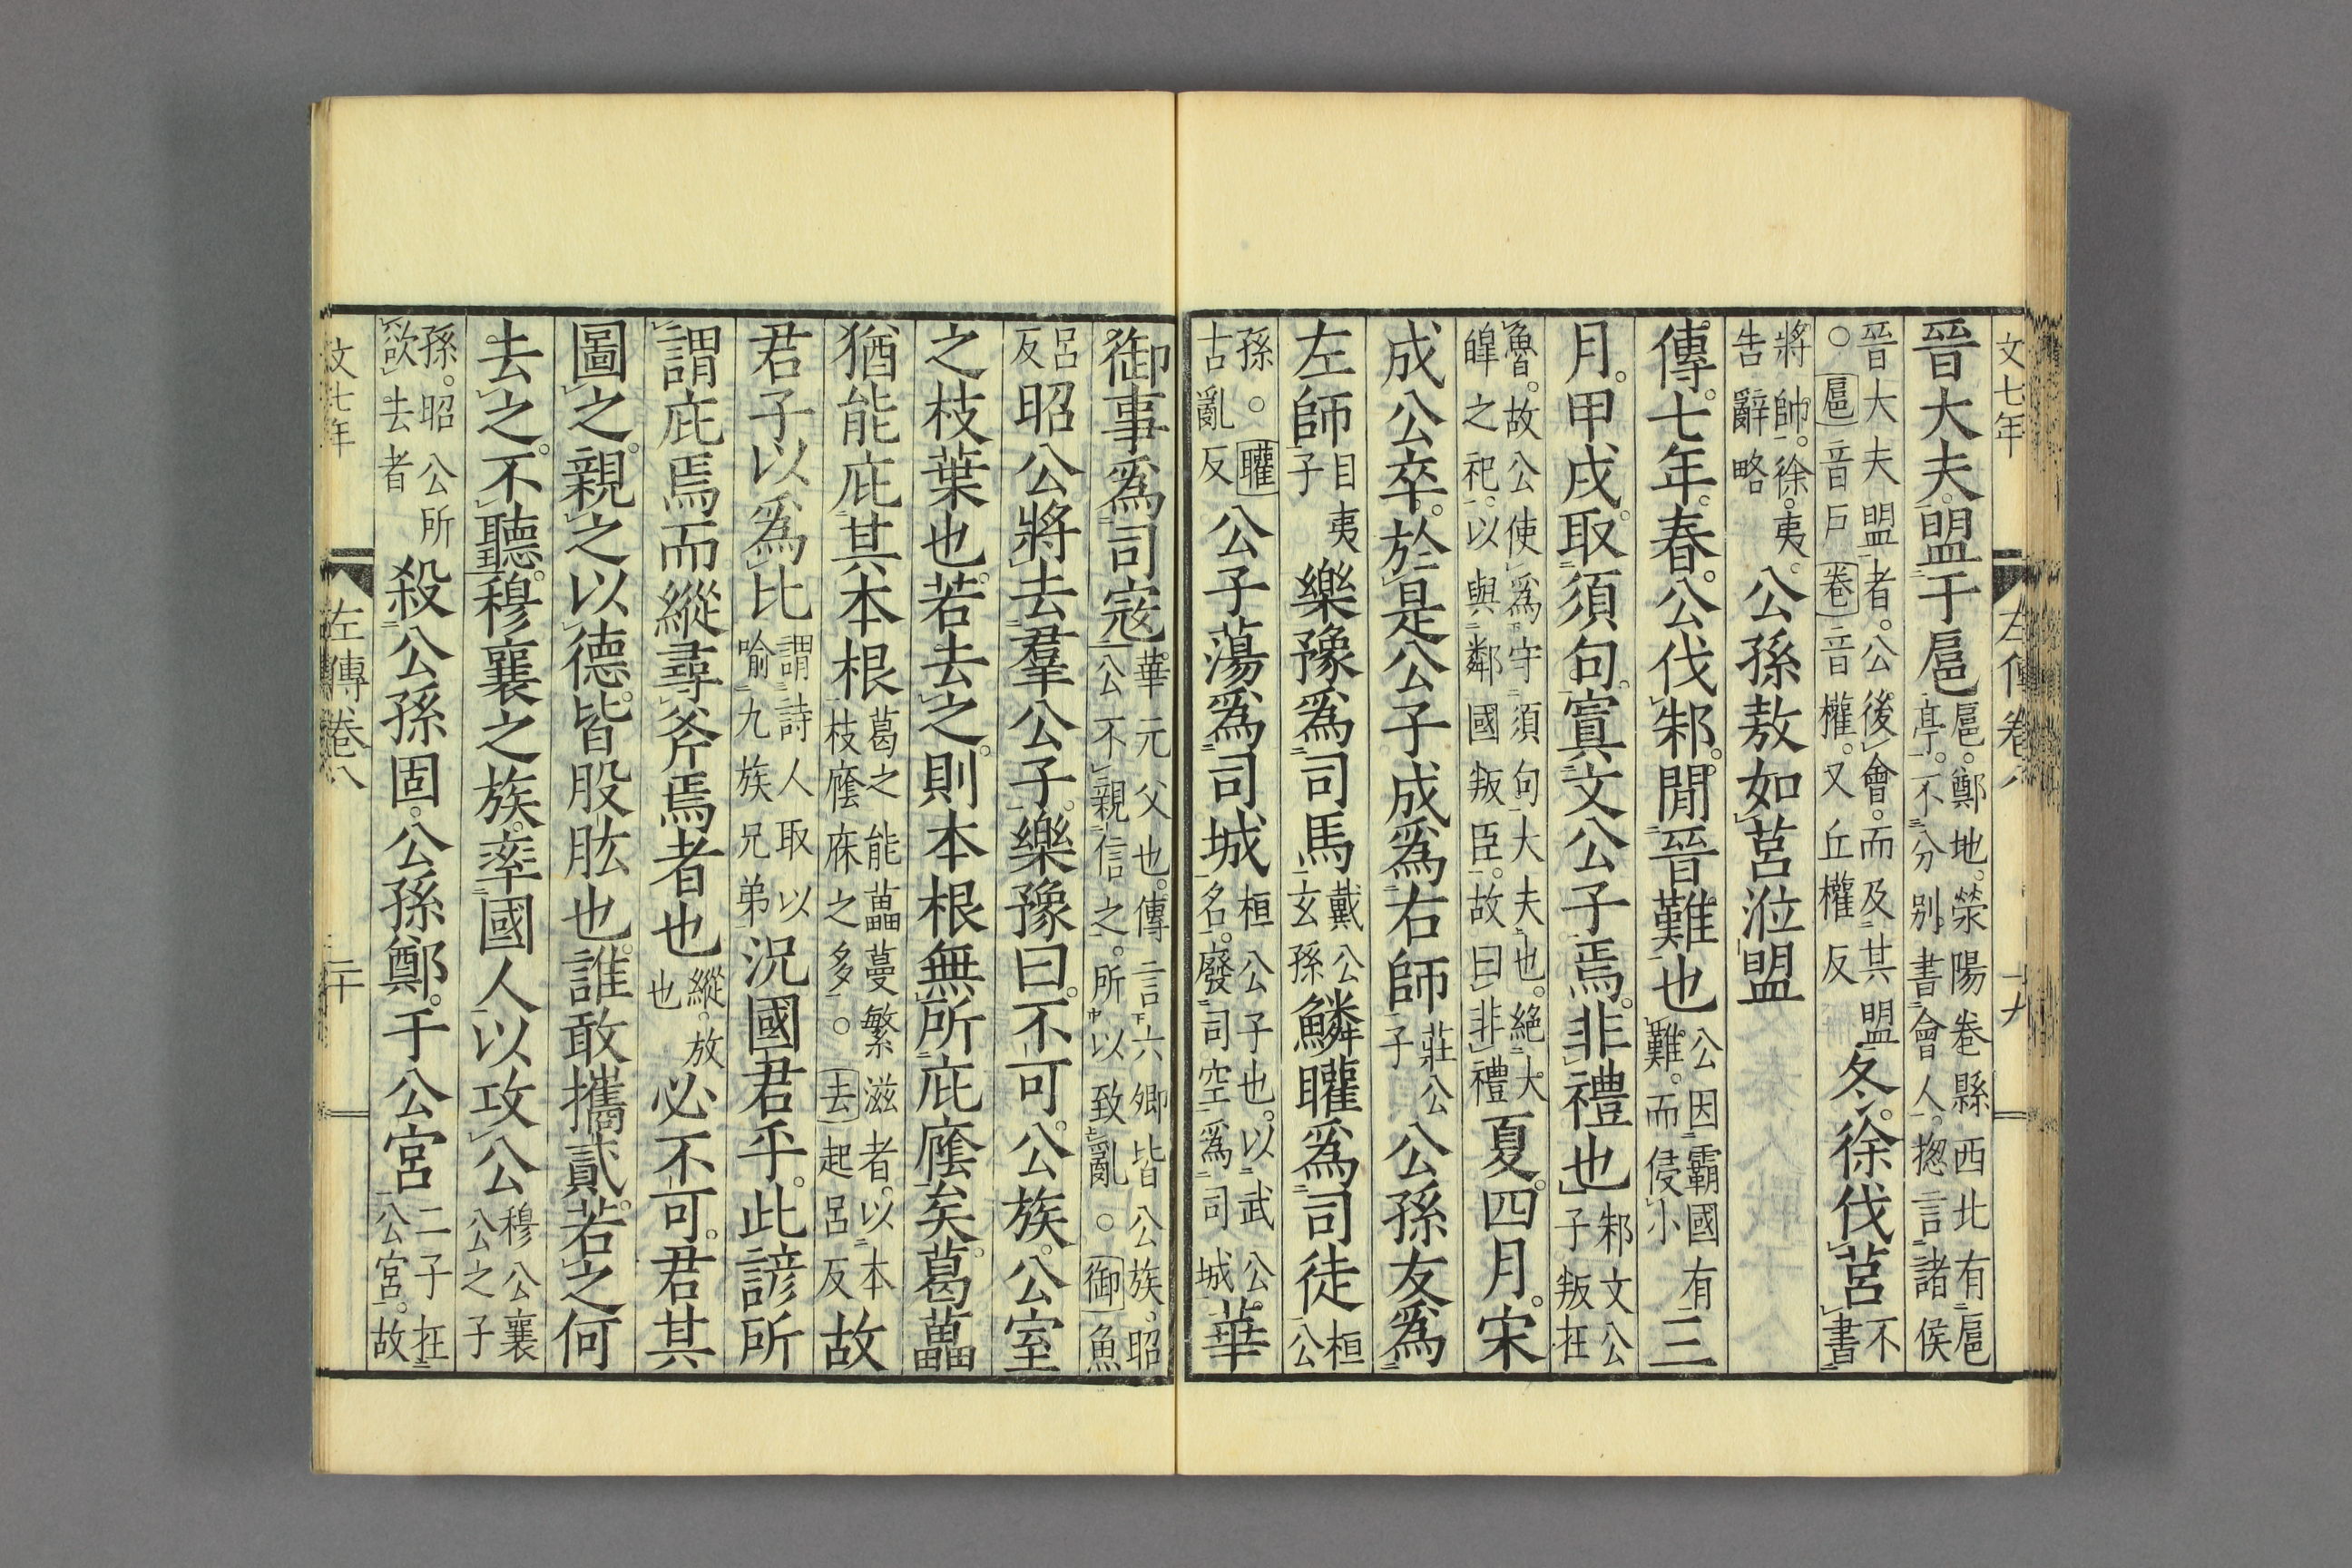 文七年 左傳卷八 十九
晉大夫盟于扈扈鄭地滎陽卷縣西北有扈亭不分別書會人揔言諸侯
晉大夫盟者公後會而及其盟○扈音戸卷音權又丘權反冬徐伐莒不書
將帥徐夷告辭略公孫敖如莒涖盟
傳七年春公伐邾閒晉難也公因霸國有難而侵小三
月甲戌取須句寘文公子焉非禮也邾文公子叛在
魯故公使爲守須句大夫也絶大皥之祀以與鄰國叛臣故曰非禮夏四月宋
成公卒於是公子成爲右師莊公子公孫友爲
左師目夷子樂豫爲司馬戴公玄孫鱗矔爲司徒桓公
孫○矔古亂反公子蕩爲司城桓公子也以武公名廢司空爲司城華
御事爲司寇華元父也傳言六卿皆公族昭公不親信之所以致亂○御魚
呂反昭公將去羣公子樂豫曰不可公族公室
之枝葉也若去之則本根無所庇廕矣葛藟
猶能庇其本根葛之能藟蔓繁滋者以本枝廕庥之多○去起呂反故
君子以爲比謂詩人取以喻九族兄弟況國君乎此諺所
謂庇焉而縱尋斧焉者也縱放也必不可君其
圖之親之以德皆股肱也誰敢攜貳若之何
去之不聽穆襄之族率國人以攻公穆公襄公之子
孫昭公所欲去者殺公孫固公孫鄭于公宮二子在公宮故
文七年 左傳卷八 二十